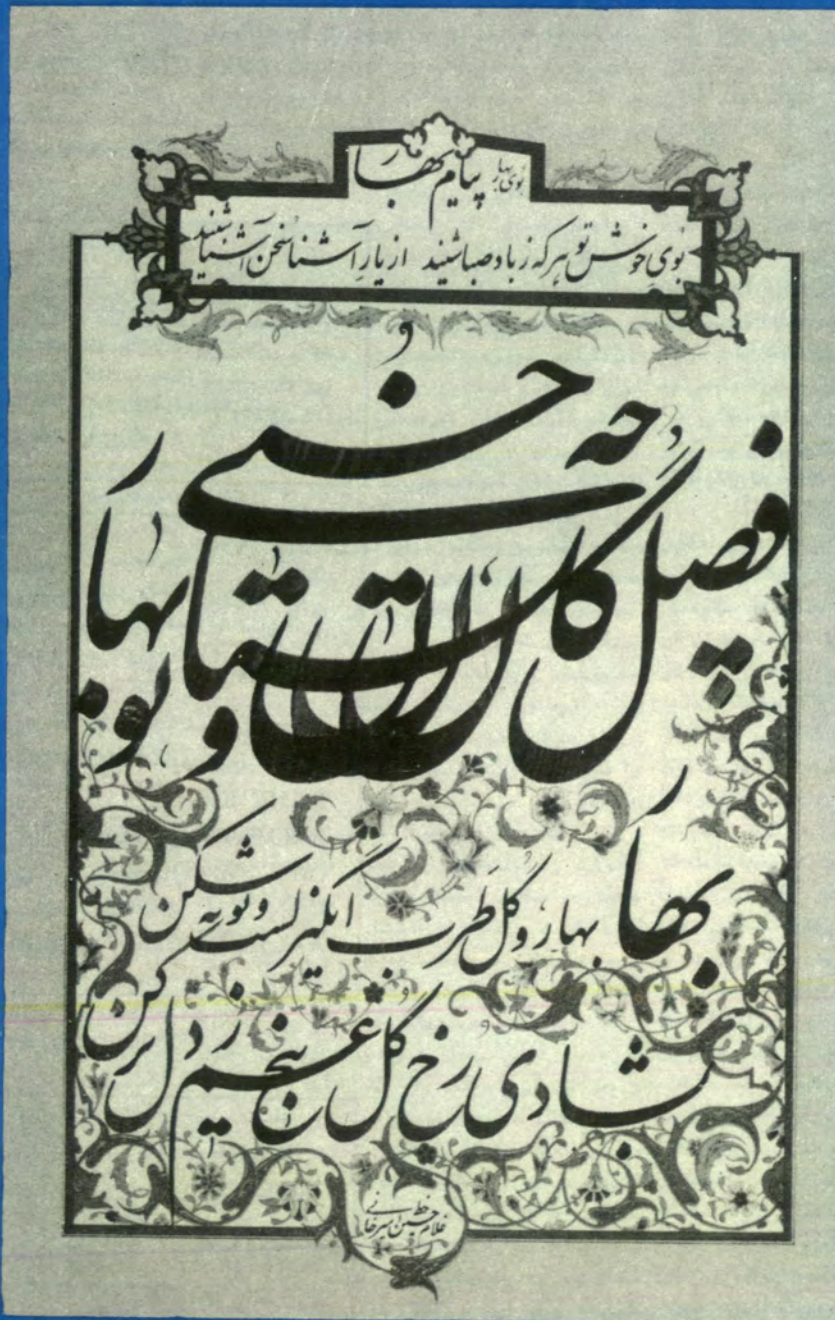 بوی بهار پیام بهار
بوی خوش تو هر که ز باد صبا شنید از یار آشنا سخن آشنا شنید
چه
فصل گل و نوبهار
بهار
بهار و گل طرب انگیز گشت و توبه شکن
بشادی رخ گل بیخ غم ز دل برکن
خط غلامحسین امیرخانی